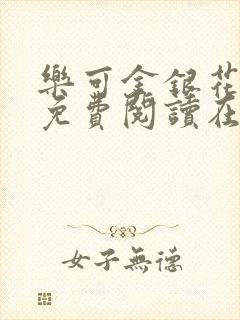 樂可金銀花
免費閱讀在
女子無德